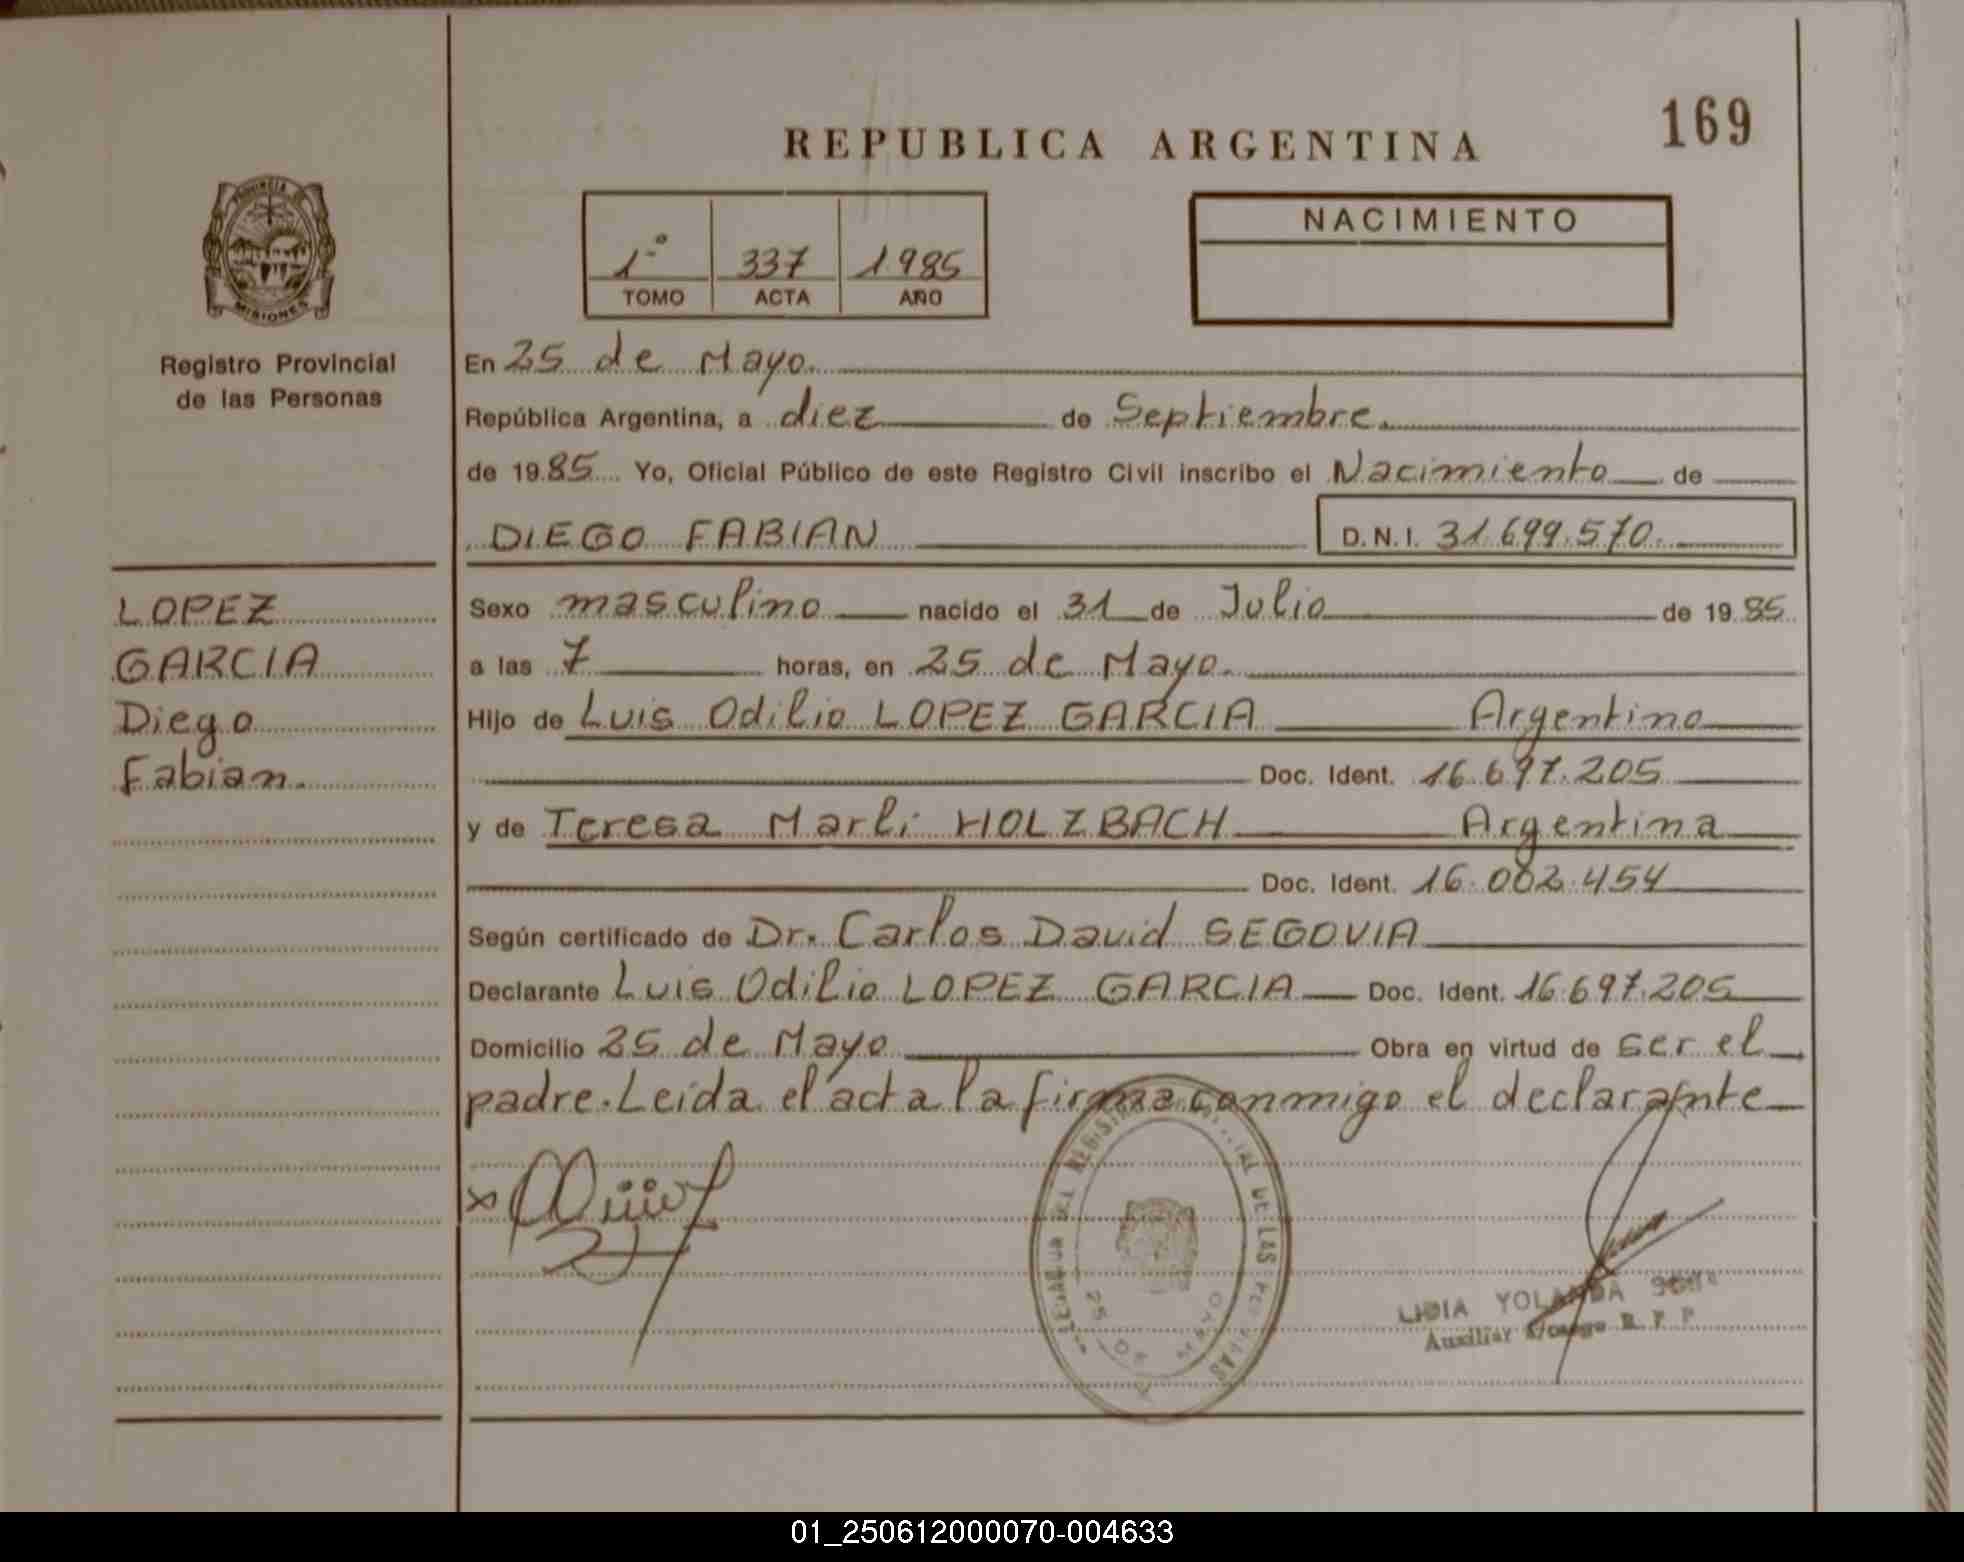 169
REPUBLICA ARGENTINA
PROVINCIA DE
MISIONES
Registro Provincial
de las Personas
1º 337 1985
TOMO ACTA AÑO
NACIMIENTO
En 25 de Mayo.
República Argentina, a diez de Septiembre.
de 1985 Yo, Oficial Público de este Registro Civil inscribo el Nacimiento de
DIEGO FABIAN D.N.I. 31.699.570.
LOPEZ
GARCIA
Diego
Fabian.
Sexo masculino nacido el 31 de Julio de 1985
a las 7 horas, en 25 de Mayo.
Hijo de Luis Odilio LOPEZ GARCIA Argentino
Doc. Ident. 16.697.205
y de Teresa Marli HOLZBACH Argentina
Doc. Ident. 16.002.454
Según certificado de Dr. Carlos David SEGOVIA
Declarante Luis Odilio LOPEZ GARCIA Doc. Ident. 16.697.205
Domicilio 25 de Mayo Obra en virtud de ser el
padre. Leída el acta la firma conmigo el declarante
x
DEL REGISTRO DE LAS
25 DE MAYO
LIDIA YOLANDA
Auxiliar R. P. P.
01_250612000070-004633